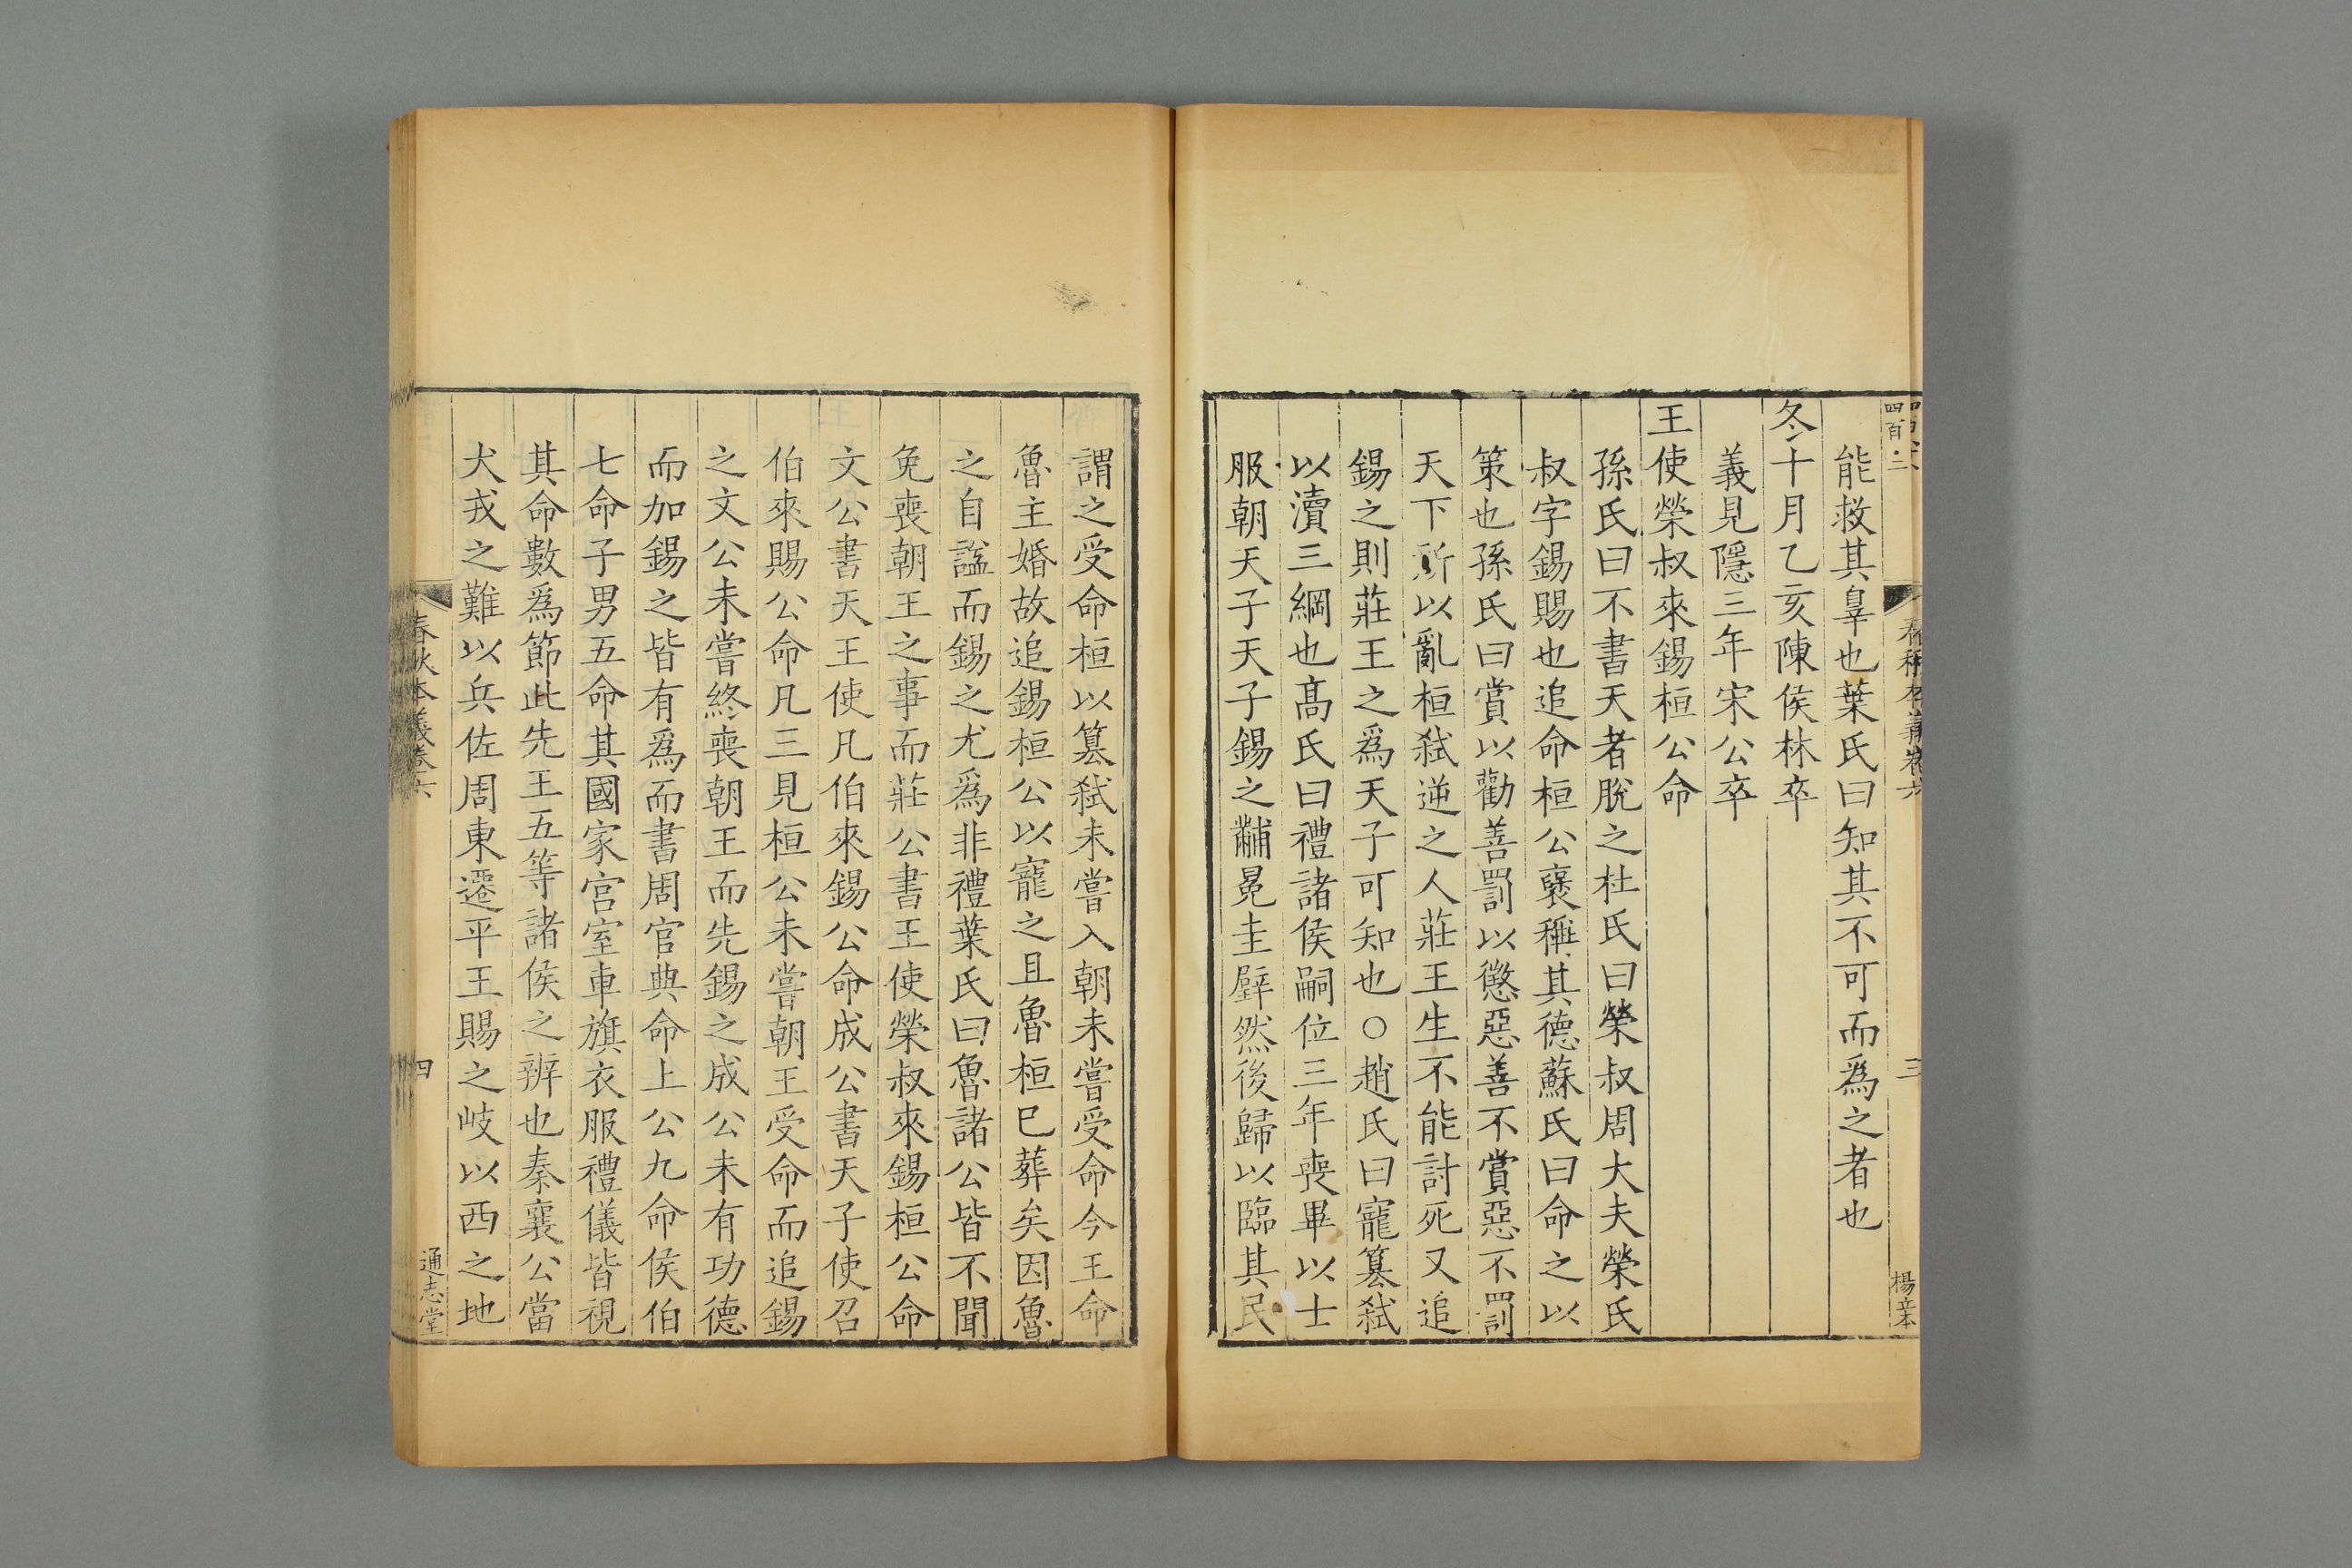 能救其辠也葉氏曰知其不可而爲之者也
冬十月乙亥陳侯林卒
義見隱三年宋公卒
王使榮叔來錫桓公命
孫氏曰不書天者脫之杜氏曰榮叔周大夫榮氏
叔字錫賜也追命桓公襃稱其德蘇氏曰命之以
策也孫氏曰賞以勸善罰以懲惡善不賞惡不罰
天下所以亂桓弑逆之人莊王生不能討死又追
錫之則莊王之爲天子可知也○趙氏曰寵簒弑
以瀆三綱也髙氏曰禮諸侯嗣位三年喪畢以士
服朝天子天子錫之黼冕圭璧然後歸以臨其民
謂之受命桓以簒弑未嘗入朝未嘗受命今王命
魯主婚故追錫桓公以寵之且魯桓已葬矣因魯
之自諡而錫之尤爲非禮葉氏曰魯諸公皆不聞
免喪朝王之事而莊公書王使榮叔來錫桓公命
文公書天王使凡伯來錫公命成公書天子使召
伯來賜公命凡三見桓公未嘗朝王受命而追錫
之文公未嘗終喪朝王而先錫之成公未有功德
而加錫之皆有爲而書周官典命上公九命侯伯
七命子男五命其國家宫室車旗衣服禮儀皆視
其命數爲節此先王五等諸侯之辨也秦襄公當
犬戎之難以兵佐周東遷平王賜之岐以西之地
春秋本義卷六
四
通志堂